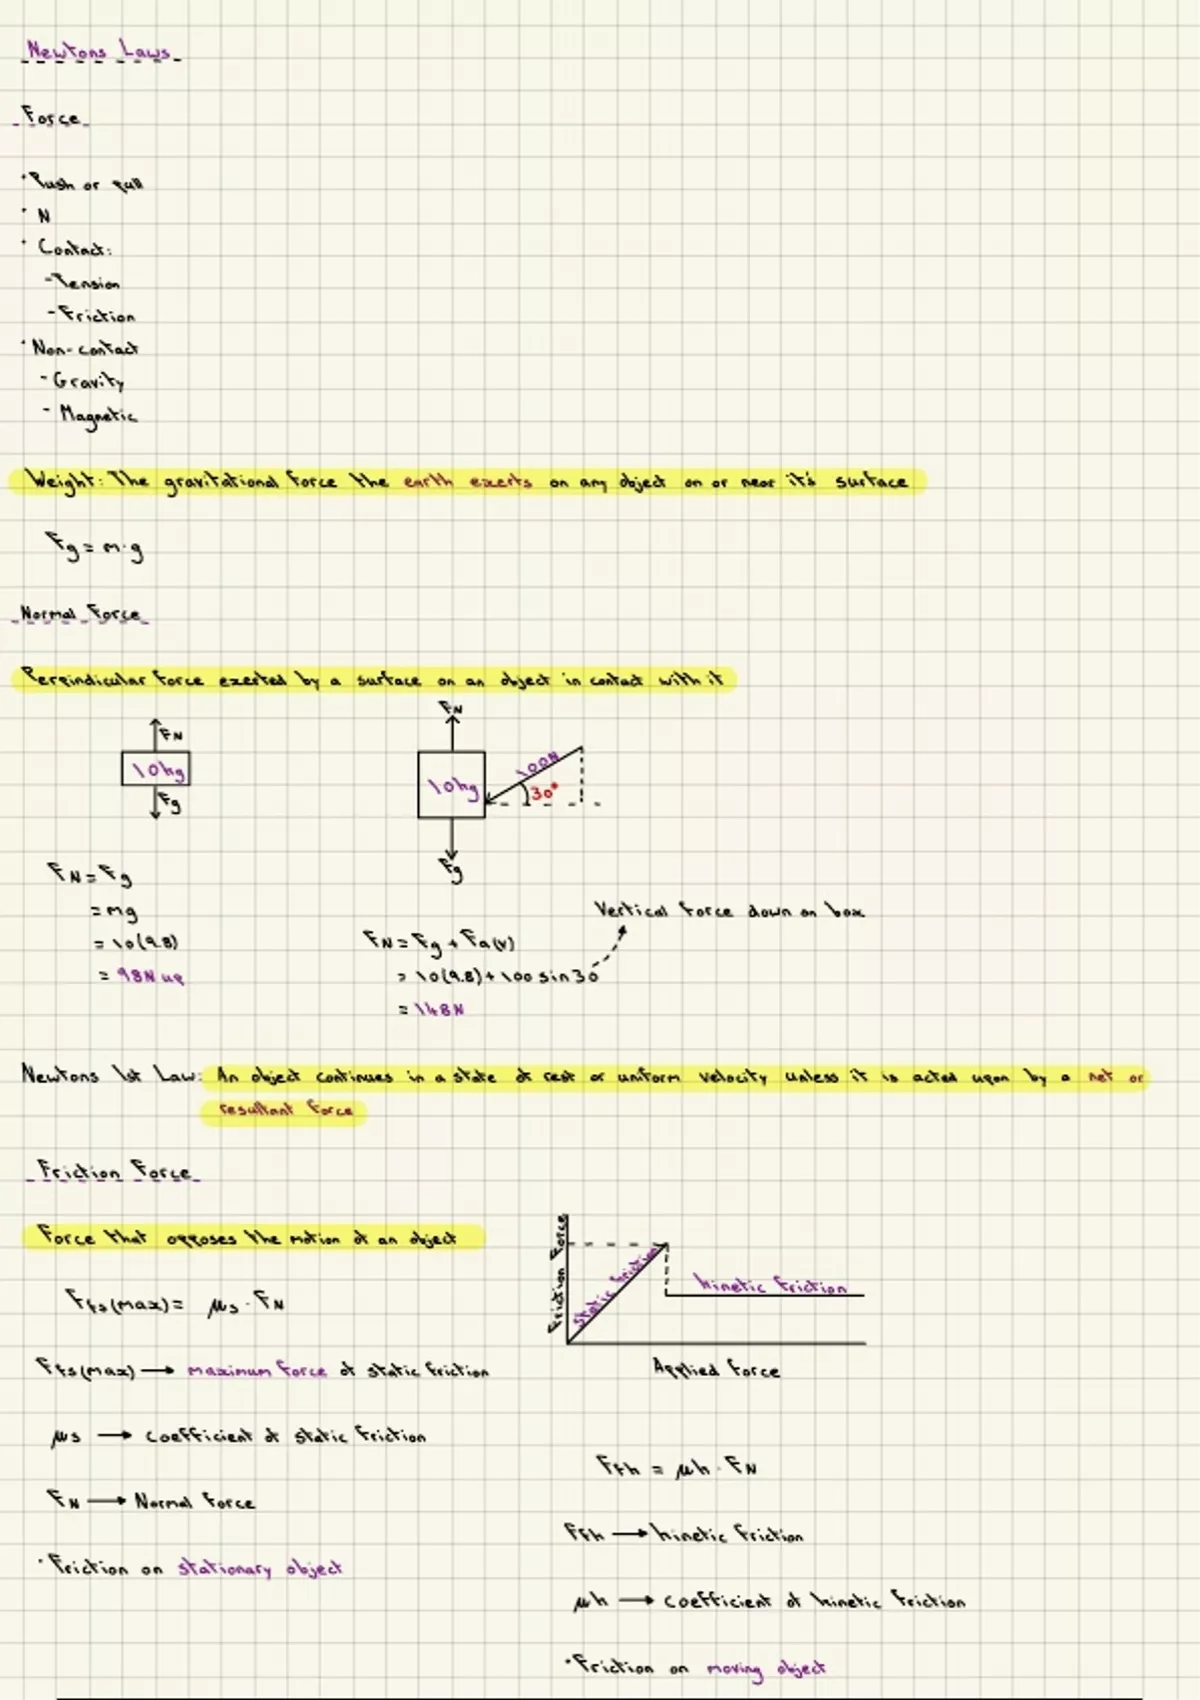 Newtons Laws
Force
• Push or pull
• N
• Contact:
- Tension
- Friction
• Non-contact
- Gravity
- Magnetic
Weight: The gravitational force the earth exerts on any object on or near it's surface
Fg = m·g
Normal Force
Perpindicular force exerted by a surface on an object in contact with it
FN
10kg
Fg
FN
10kg
100N
30°
Fg
FN = Fg
= mg
= 10(9.8)
= 98N up
Vertical force down on box
FN = Fg + Fa(v)
= 10(9.8) + 100 sin 30
= 148N
Newtons 1st Law: An object continues in a state of rest or uniform velocity unless it is acted upon by a net or
resultant force
Friction Force
Force that opposes the motion of an object
Ffs(max) = μs · FN
Ffs(max) → maximum force of static friction
μs → coefficient of static friction
FN → Normal force
• Friction on stationary object
Friction Force
Static friction
kinetic friction
Applied force
Ffk = μk · FN
Ffk → kinetic friction
μk → coefficient of kinetic friction
• Friction on moving object